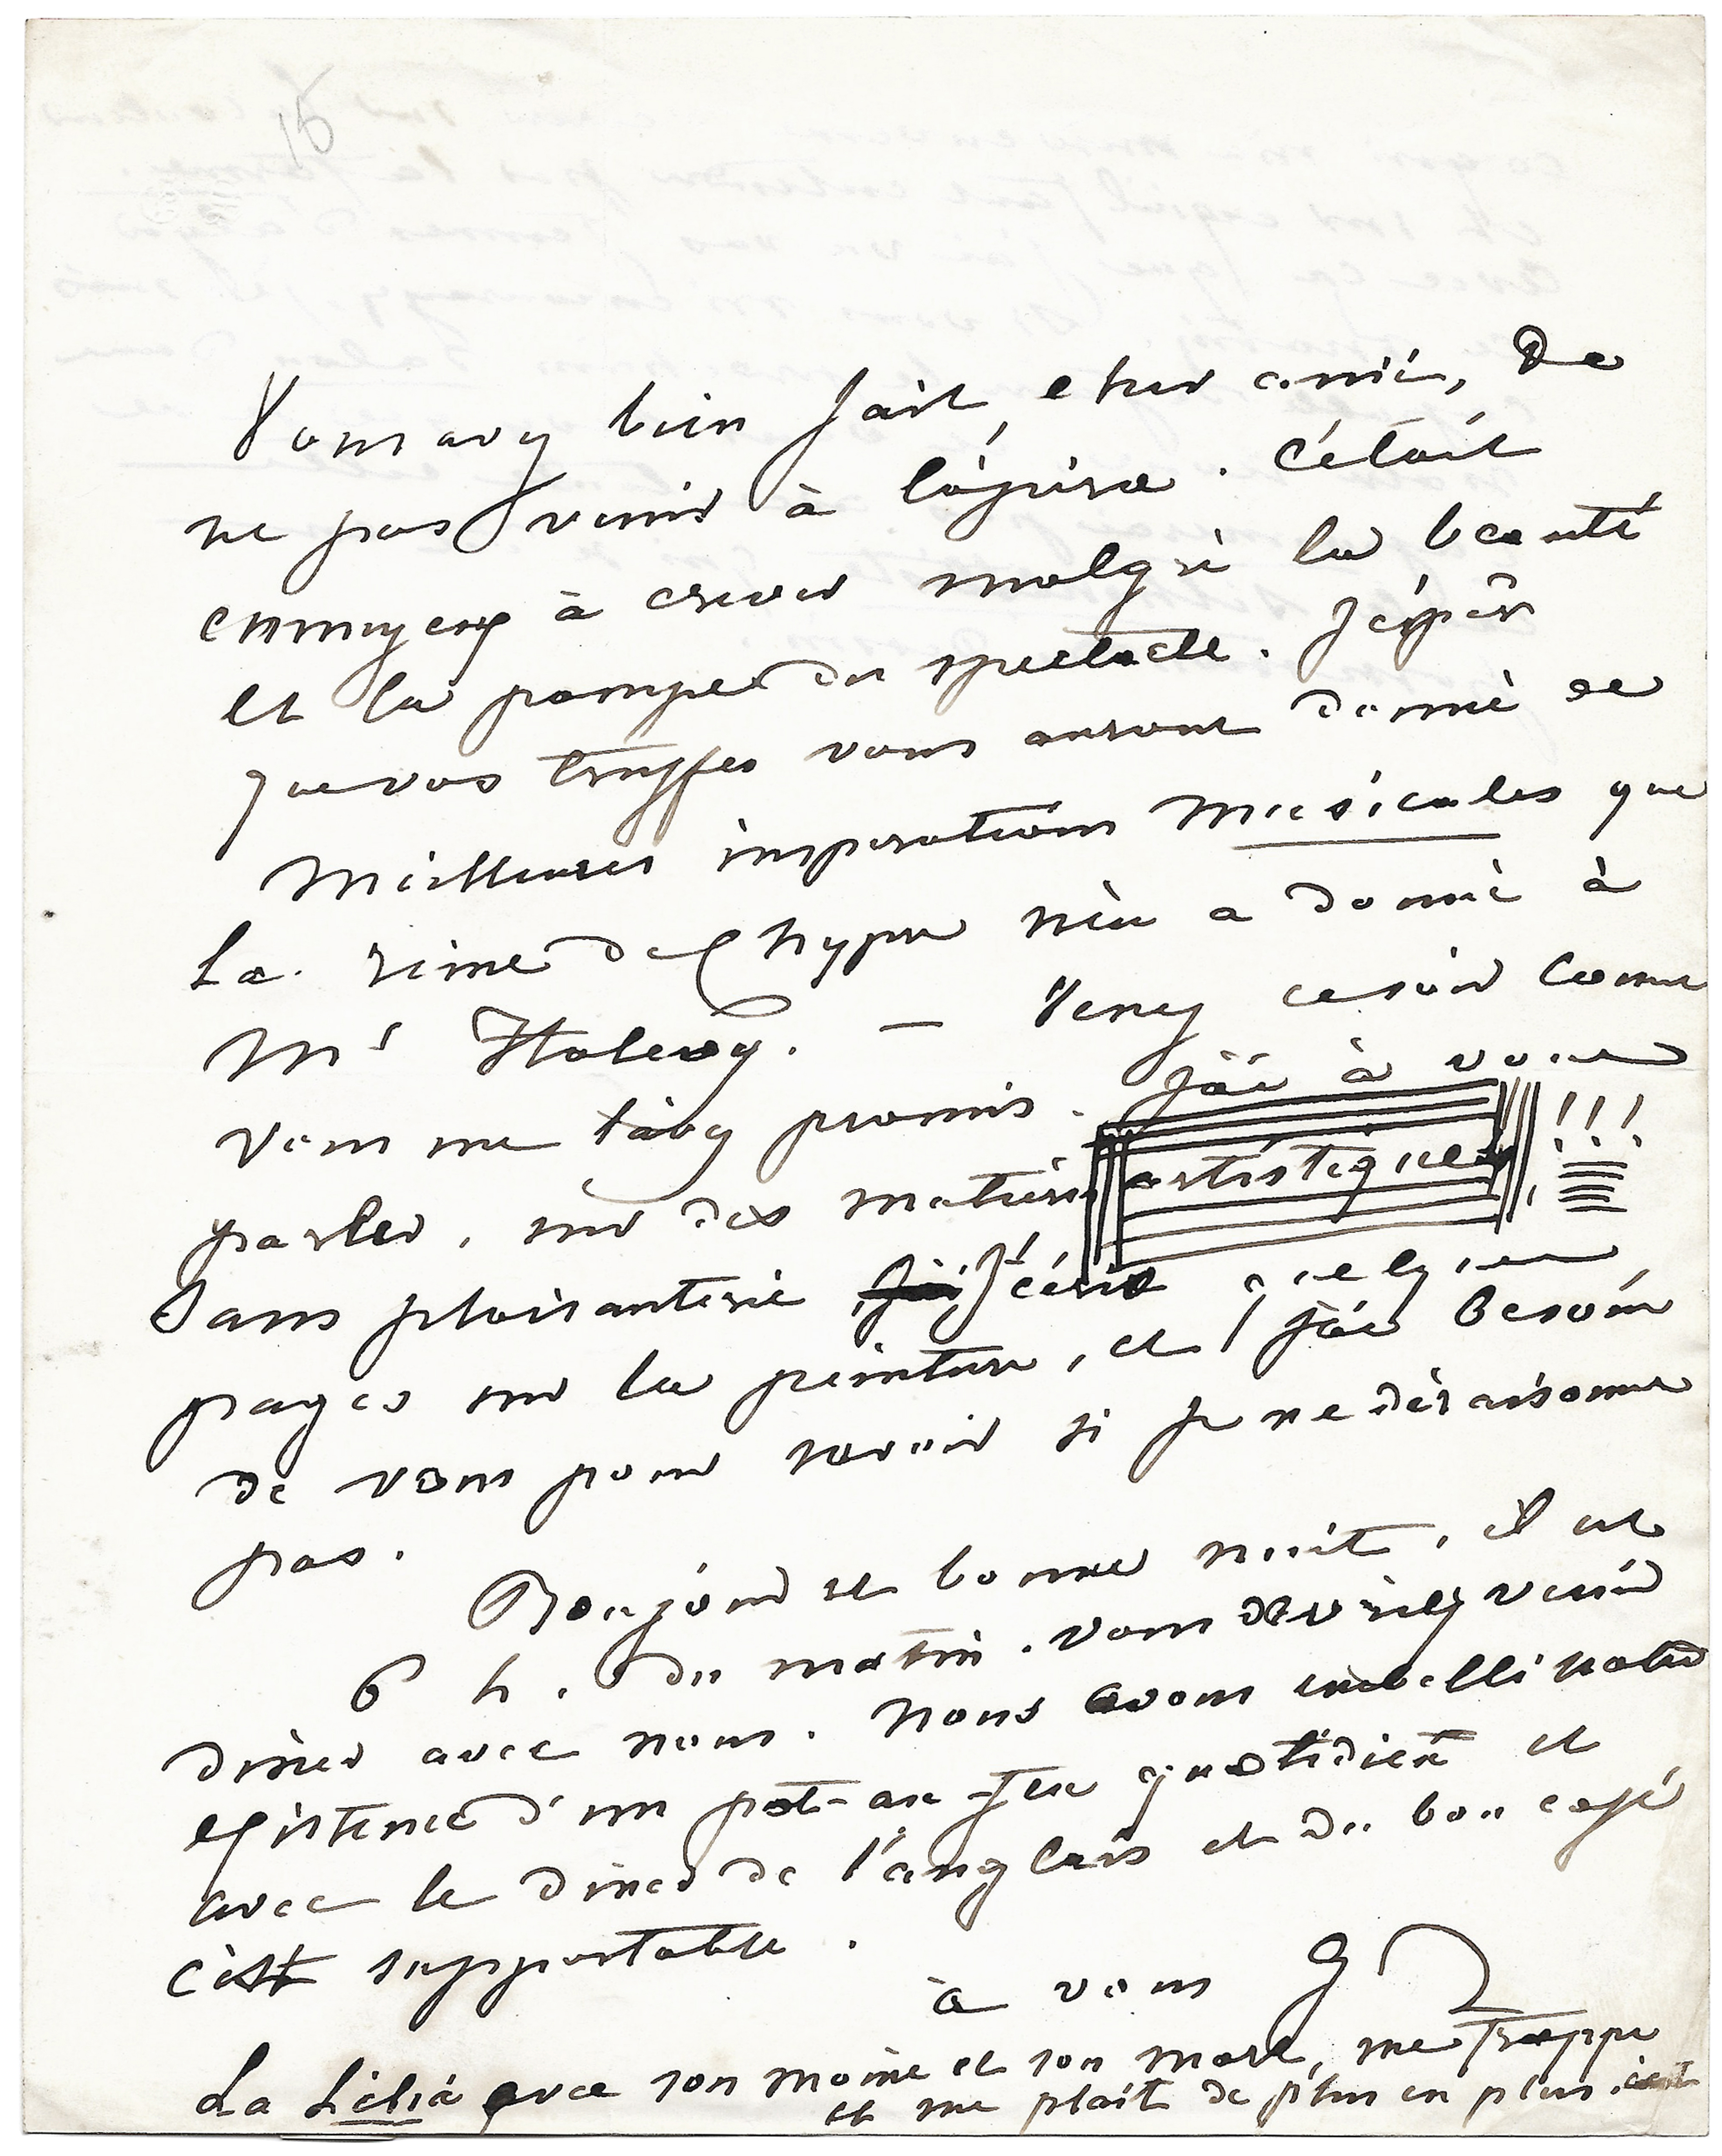 15
Vous avez bien fait, cher ami, de
ne pas venir à l'opéra. C'était
ennuyeux à crever malgré la beauté
et la pompe du spectacle. J'espère
que vos truffes vous auront donné de
meilleures inspirations musicales que
La reine de Chypre n'en a donné à
Mr Halevy. — Venez ce soir comme
vous me l'avez promis. J'ai à vous
parler, sur des matières artistiques !!!
Sans plaisanterie J'écris quelques
pages sur la peinture, et j'ai besoin
de vous pour savoir si je ne déraisonne
pas.
Bonjour et bonne nuit, il est
6 h. du matin. Vous devriez venir
diner avec nous. Nous avons embelli notre
existence d'un pot-au-feu quotidien et
avec le diner de l'anglais et du bon café
c'est supportable.
à vous G
La Lélia avec son moine et son mort, me frappe
et me plait de plus en plus.